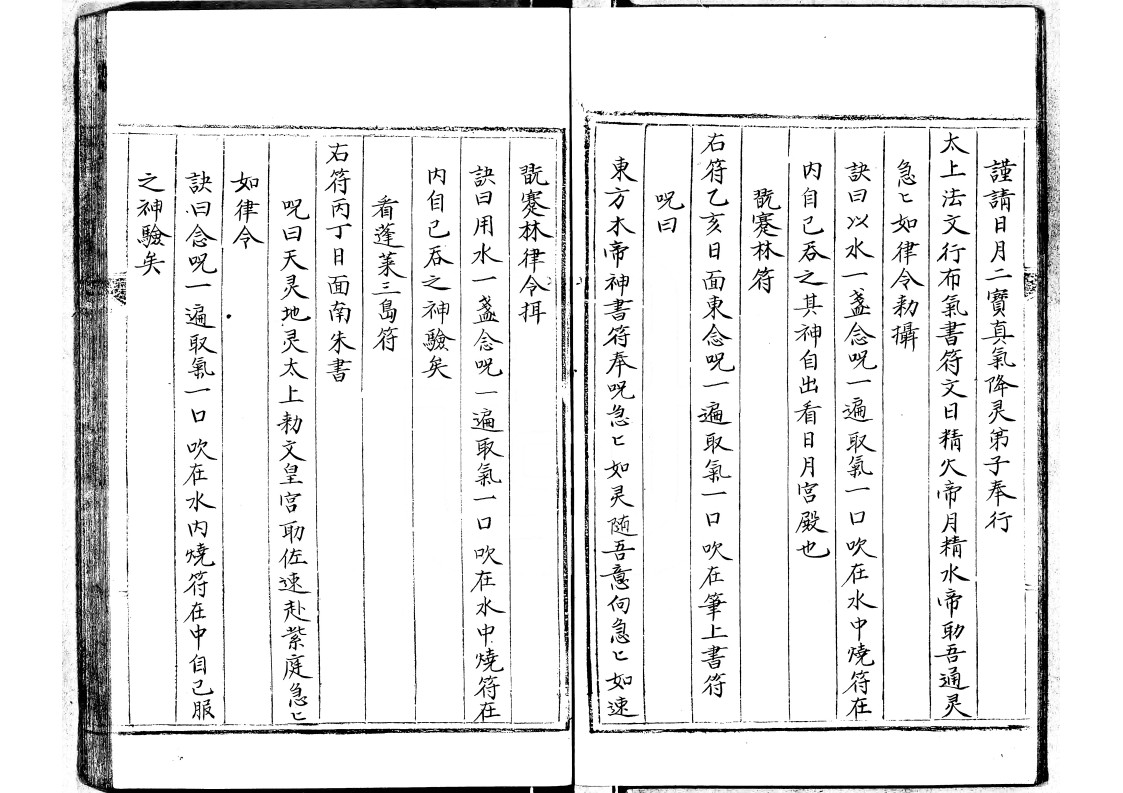 謹請日月二寶真氣降灵弟子奉行
太上法文行布氣書符文日精火帝月精水帝助吾通灵
急〻如律令勑攝
訣曰以水一盞念呪一遍取氣一口吹在水中燒符在
内自己吞之其神自出看日月宮殿也
翫蹇林符
右符乙亥日面東念呪一遍取氣一口吹在筆上書符
呪曰
東方木帝神書符奉呪急〻如灵随吾意向急〻如速
翫蹇林律令揖
訣曰用水一盞念呪一遍取氣一口吹在水中燒符在
内自己吞之神驗矣
看蓬莱三島符
右符丙丁日面南朱書
呪曰天灵地灵太上勑文皇宮助佐速赴紫庭急〻
如律令
訣曰念呪一遍取氣一口吹在水内燒符在中自己服
之神驗矣